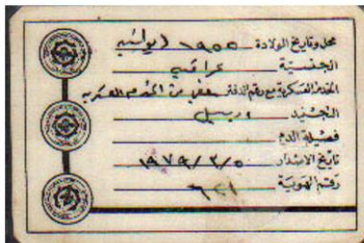 محل وتاريخ الولادة ١٩٥٥
الجنسية عراقية
الخدمة العسكرية مع رقم الدفتر من الخدمة العسكرية
التجنيد اربيل
فصيلة الدم
تاريخ الاصدار ١٩٧٩/٣/٥
رقم الهوية ٦٢١